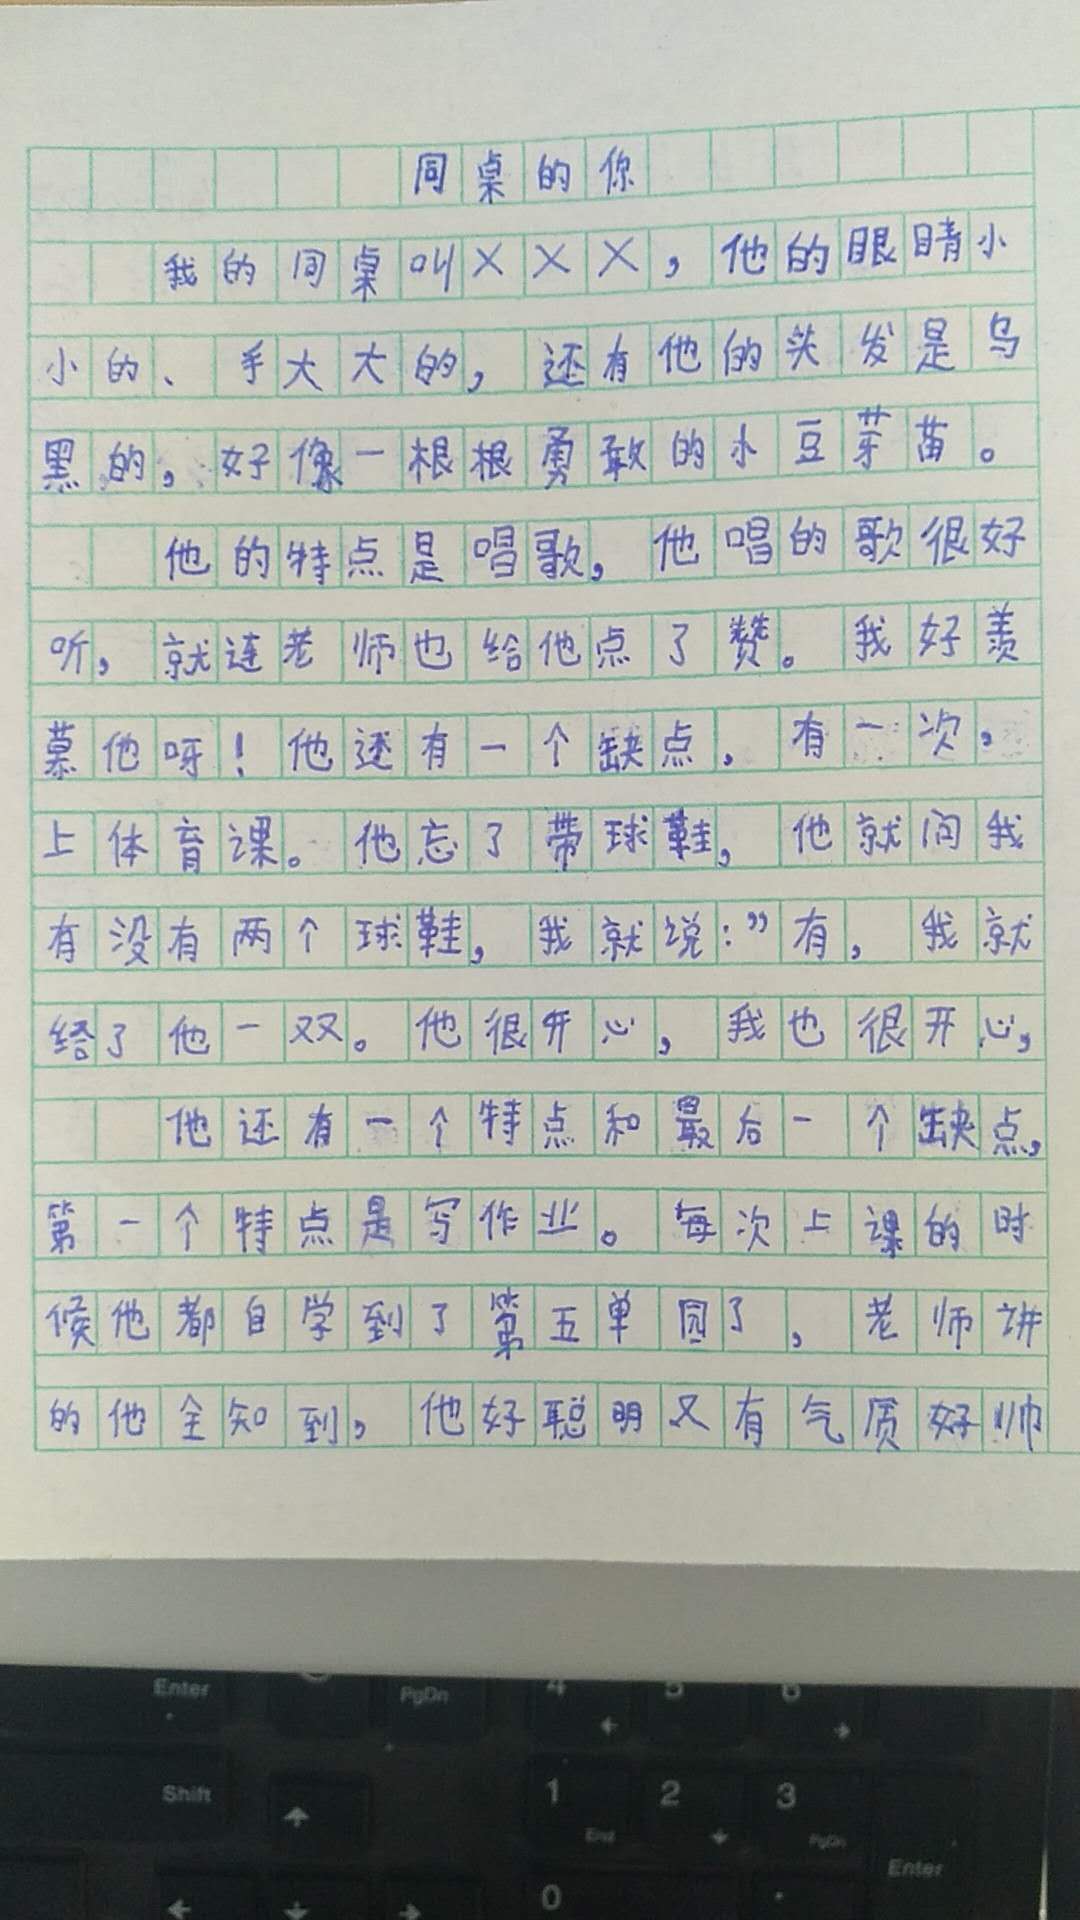 同桌的你
我的同桌叫×××，他的眼睛小
小的、手大大的，还有他的头发是乌
黑的，好像一根根勇敢的小豆芽苗。
他的特点是唱歌，他唱的歌很好
听，就连老师也给他点了赞。我好羡
慕他呀！他还有一个缺点，有一次，
上体育课。他忘了带球鞋，他就问我
有没有两个球鞋，我就说：”有，我就
给了他一双。他很开心，我也很开心，
他还有一个特点和最后一个缺点，
第一个特点是写作业。每次上课的时
候他都自学到了第五单园了，老师讲
的他全知到，他好聪明又有气质好帅
Enter
PgDn
4
5
6
Shift
1
End
2
3
PgDn
Enter
0